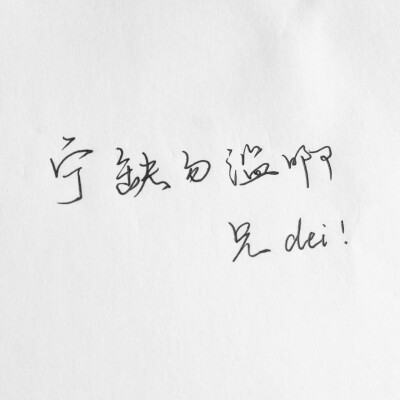 宁缺勿滥啊
兄dei!